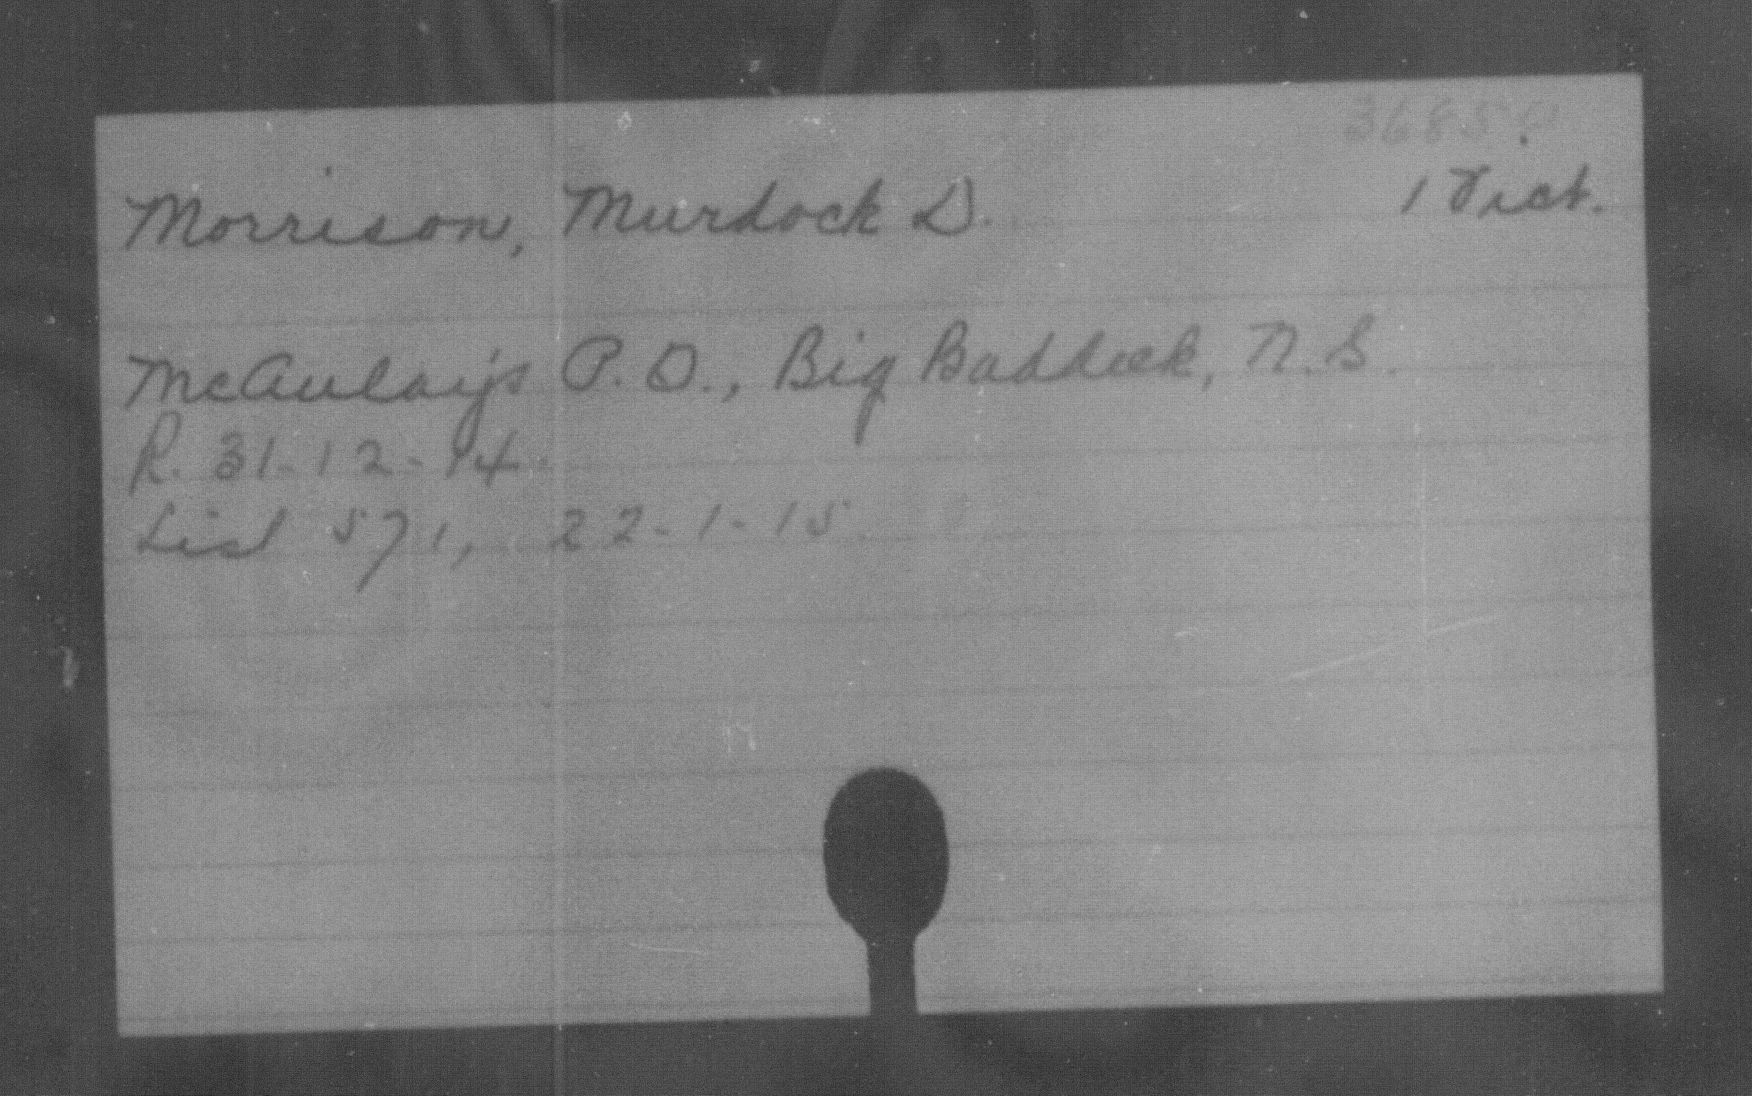 36850
Morrison, Murdock D. 1 Vict.
McAulay's P.O., Big Baddeck, N.S.
R. 31-12-14.
List 571, 22-1-15.